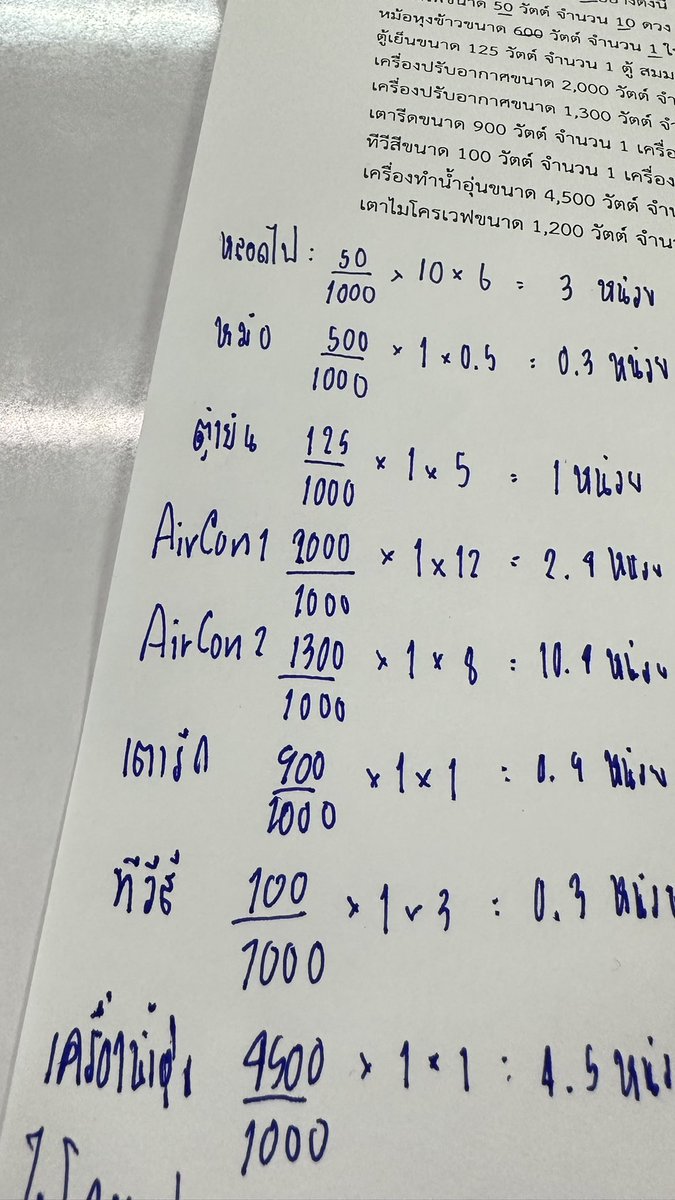 ขนาด 50 วัตต์ จำนวน 10 ดวง
หม้อหุงข้าวขนาด 600 วัตต์ จำนวน 1
ตู้เย็นขนาด 125 วัตต์ จำนวน 1 ตู้ สมม
เครื่องปรับอากาศขนาด 2,000 วัตต์
เครื่องปรับอากาศขนาด 1,300 วัตต์
เตารีดขนาด 900 วัตต์ จำนวน 1 เครื่อ
ทีวีสีขนาด 100 วัตต์ จำนวน 1 เครื่อง
เครื่องทำน้ำอุ่นขนาด 4,500 วัตต์ จำน
เตาไมโครเวฟขนาด 1,200 วัตต์ จำน
หลอดไฟ : 50/1000 × 10 × 6 = 3 หน่วย
หม้อ 500/1000 × 1 × 0.5 = 0.3 หน่วย
ตู้เย็น 125/1000 × 1 × 5 = 1 หน่วย
AirCon 1 2000/1000 × 1 × 12 = 2.4 หน่วย
AirCon 2 1300/1000 × 1 × 8 = 10.4 หน่วย
เตารีด 900/1000 × 1 × 1 = 0.9 หน่วย
ทีวีสี 100/1000 × 1 × 3 = 0.3 หน่วย
4500/1000 × 1 × 1 = 4.5 หน่ว